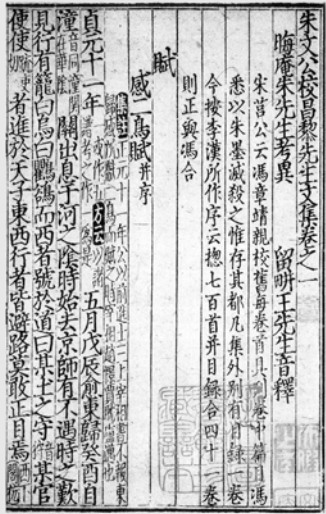 朱文公校昌黎先生文集卷之一
晦庵朱先生考異 留畊王先生音釋
宋莒公云馮章靖親校舊每卷首具列卷中篇目馮
悉以朱墨滅殺之惟存其都凡集外別有目錄一卷
今按李漢所作序云總七百首并目錄合四十一卷
則正與馮合
賦
感二鳥賦并序
貞元十一年 五月戊辰愈東歸癸酉自
潼關出息于河之陰時始去京師有不遇時之歎
見行有籠白烏白鸜鵒而西者號於道曰某土之守某官
使使者進於天子東西行者皆避路莫敢正目焉